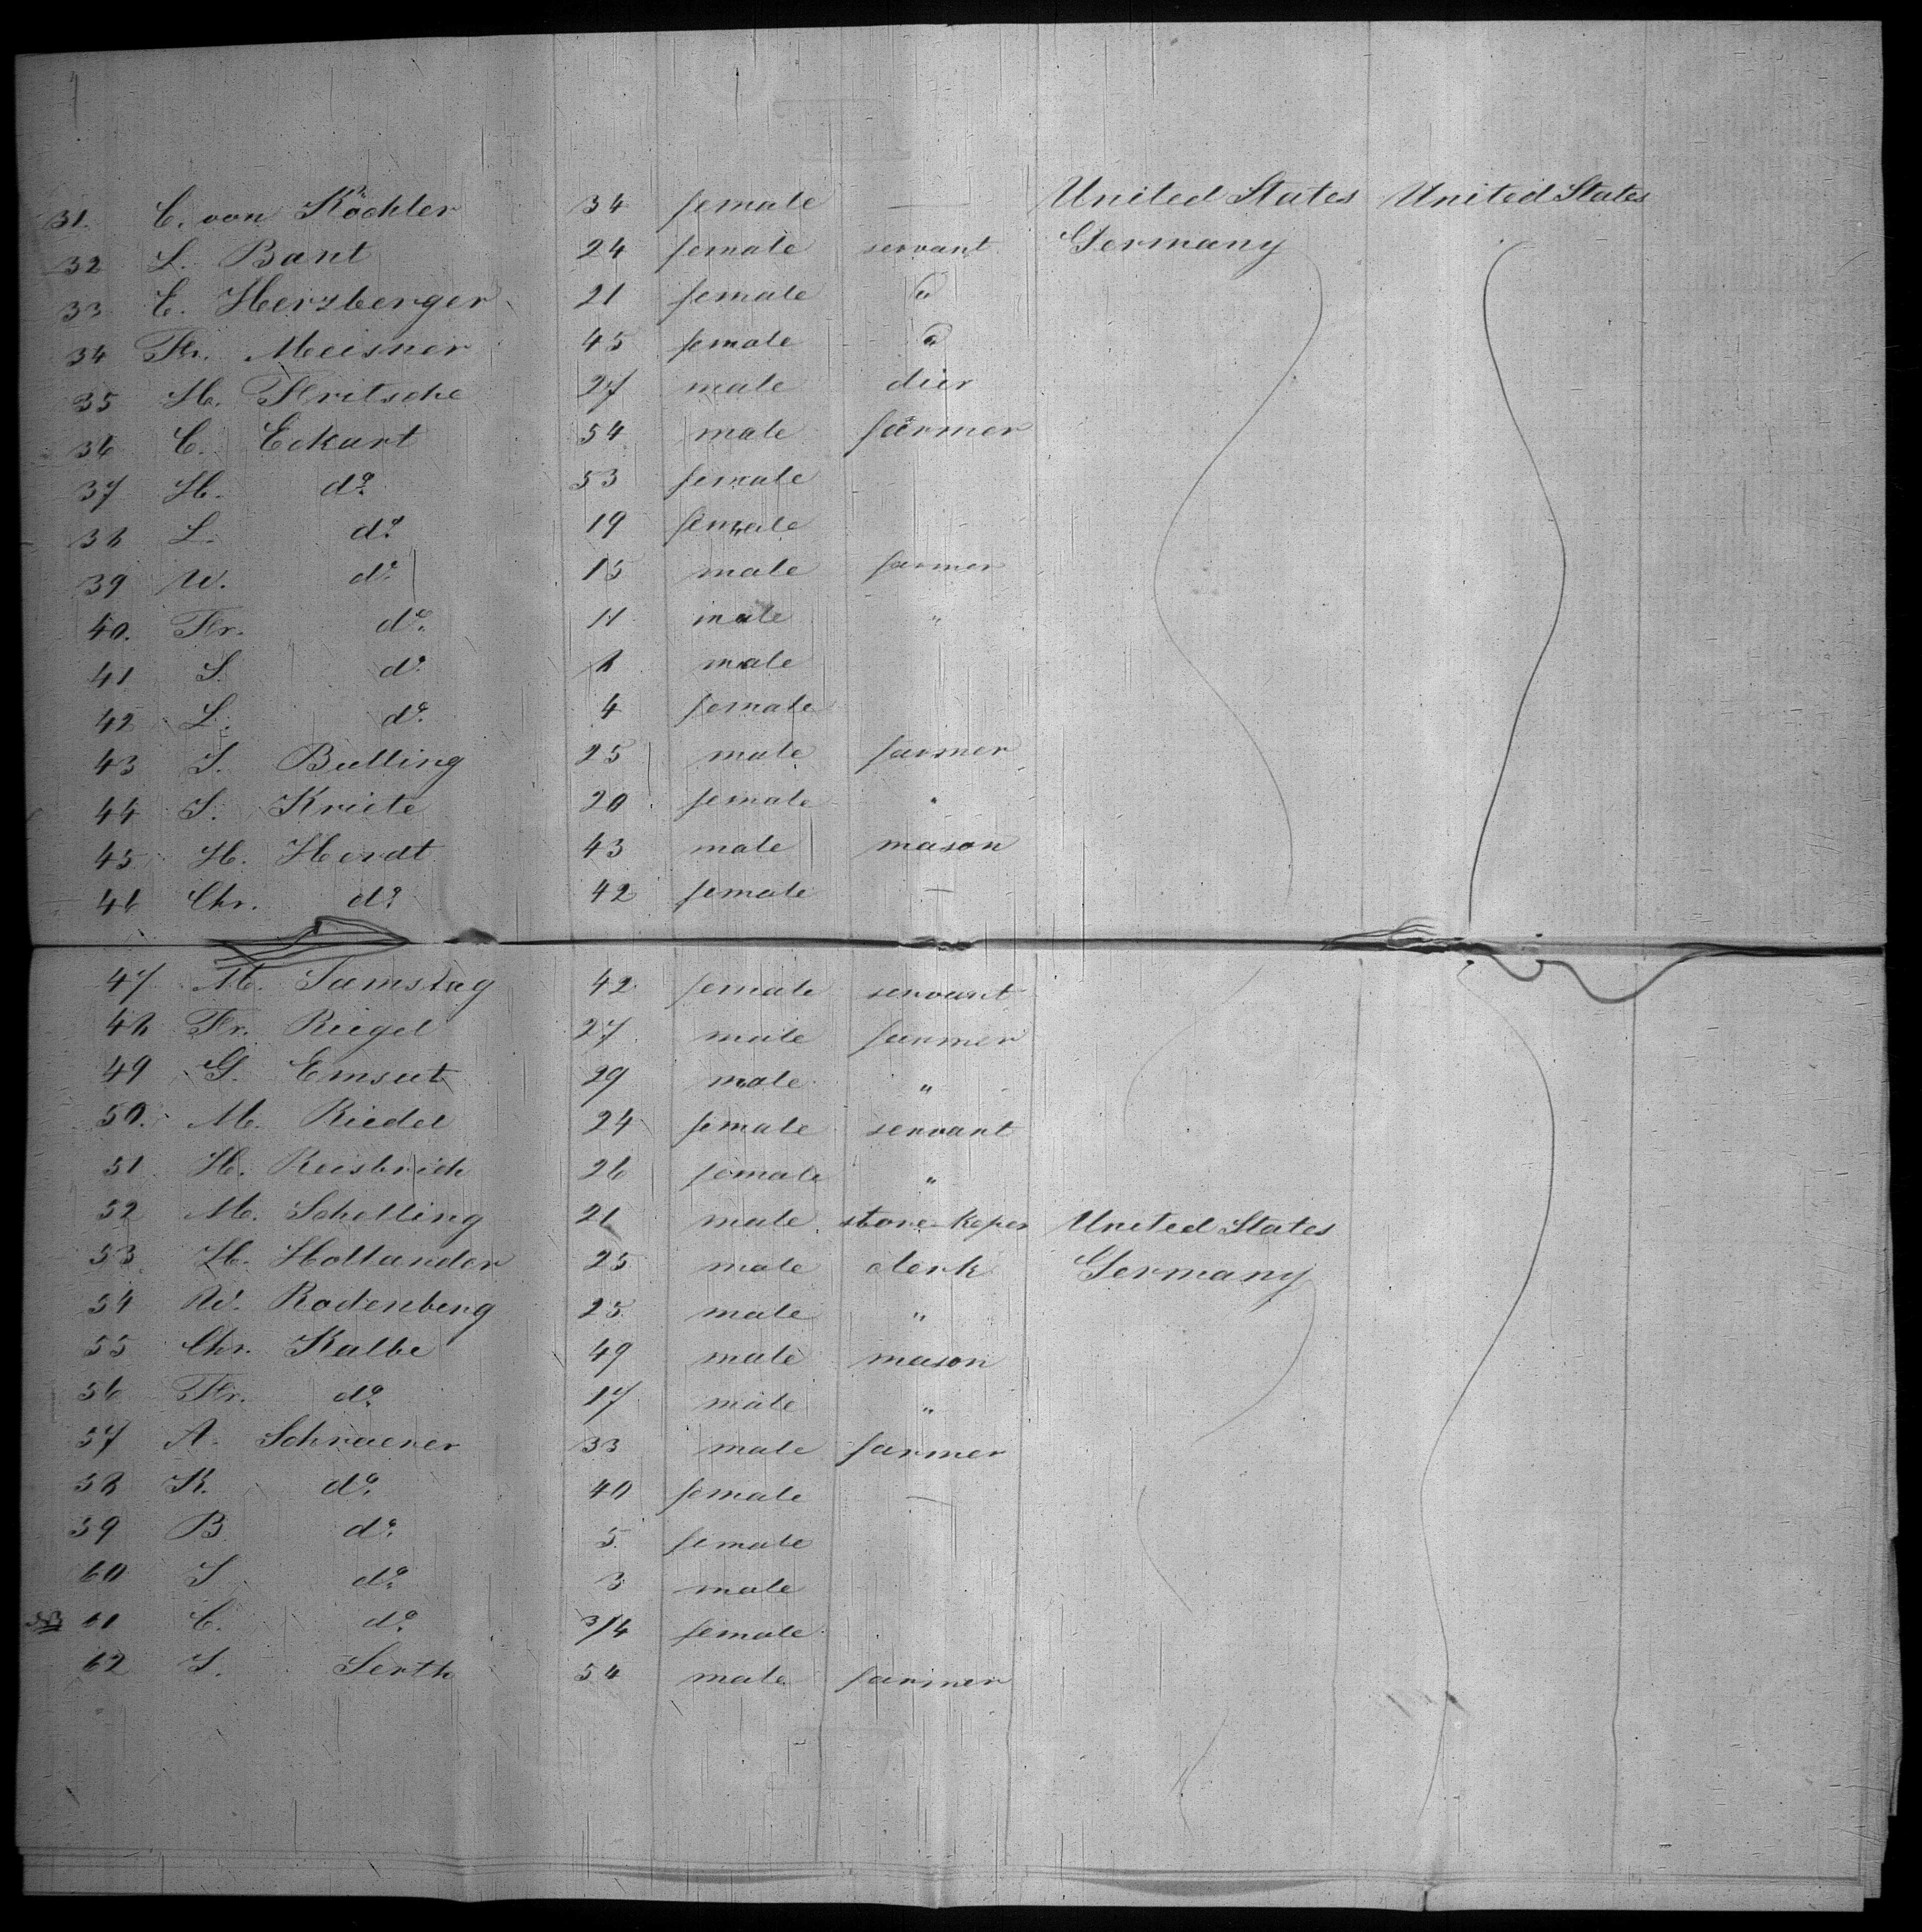 31. C. von Köchler 34 female — United States United States
32 L. Bant 24 female servant Germany
33 C. Herzberger 21 female "
34 Fr. Meisner 45 female "
35 H. Fritsche 27 male dier
36 C. Eckart 54 male farmer
37 H. do. 53 female
38 L. do. 19 female
39 W. do. 15 male farmer
40. Fr. do. 11 male "
41 S. do. 8 male
42 L. do. 4 female
43 S. Bulling 25 male farmer
44 S. Kriete 20 female "
45 H. Herdt 43 male mason
46 Chr. do. 42 female —
47 M. Samstag 42 female servant
48 Fr. Riegel 27 male farmer
49 G. Emsut 29 male "
50. M. Riedel 24 female servant
51 H. Reisbrich 26 female "
52 M. Schelling 21 male store-keper United States
53 H. Hollander 25 male clerk Germany
54 W. Rodenberg 25 male "
55 Chr. Kalbe 49 male mason
56 Fr. do. 17 male "
57 A. Schraener 33 male farmer
58 K. do. 40 female —
59 B. do. 5. female
60 S do. 3 male
61 C. do. 3/4 female
62 S. Serth 54 male farmer